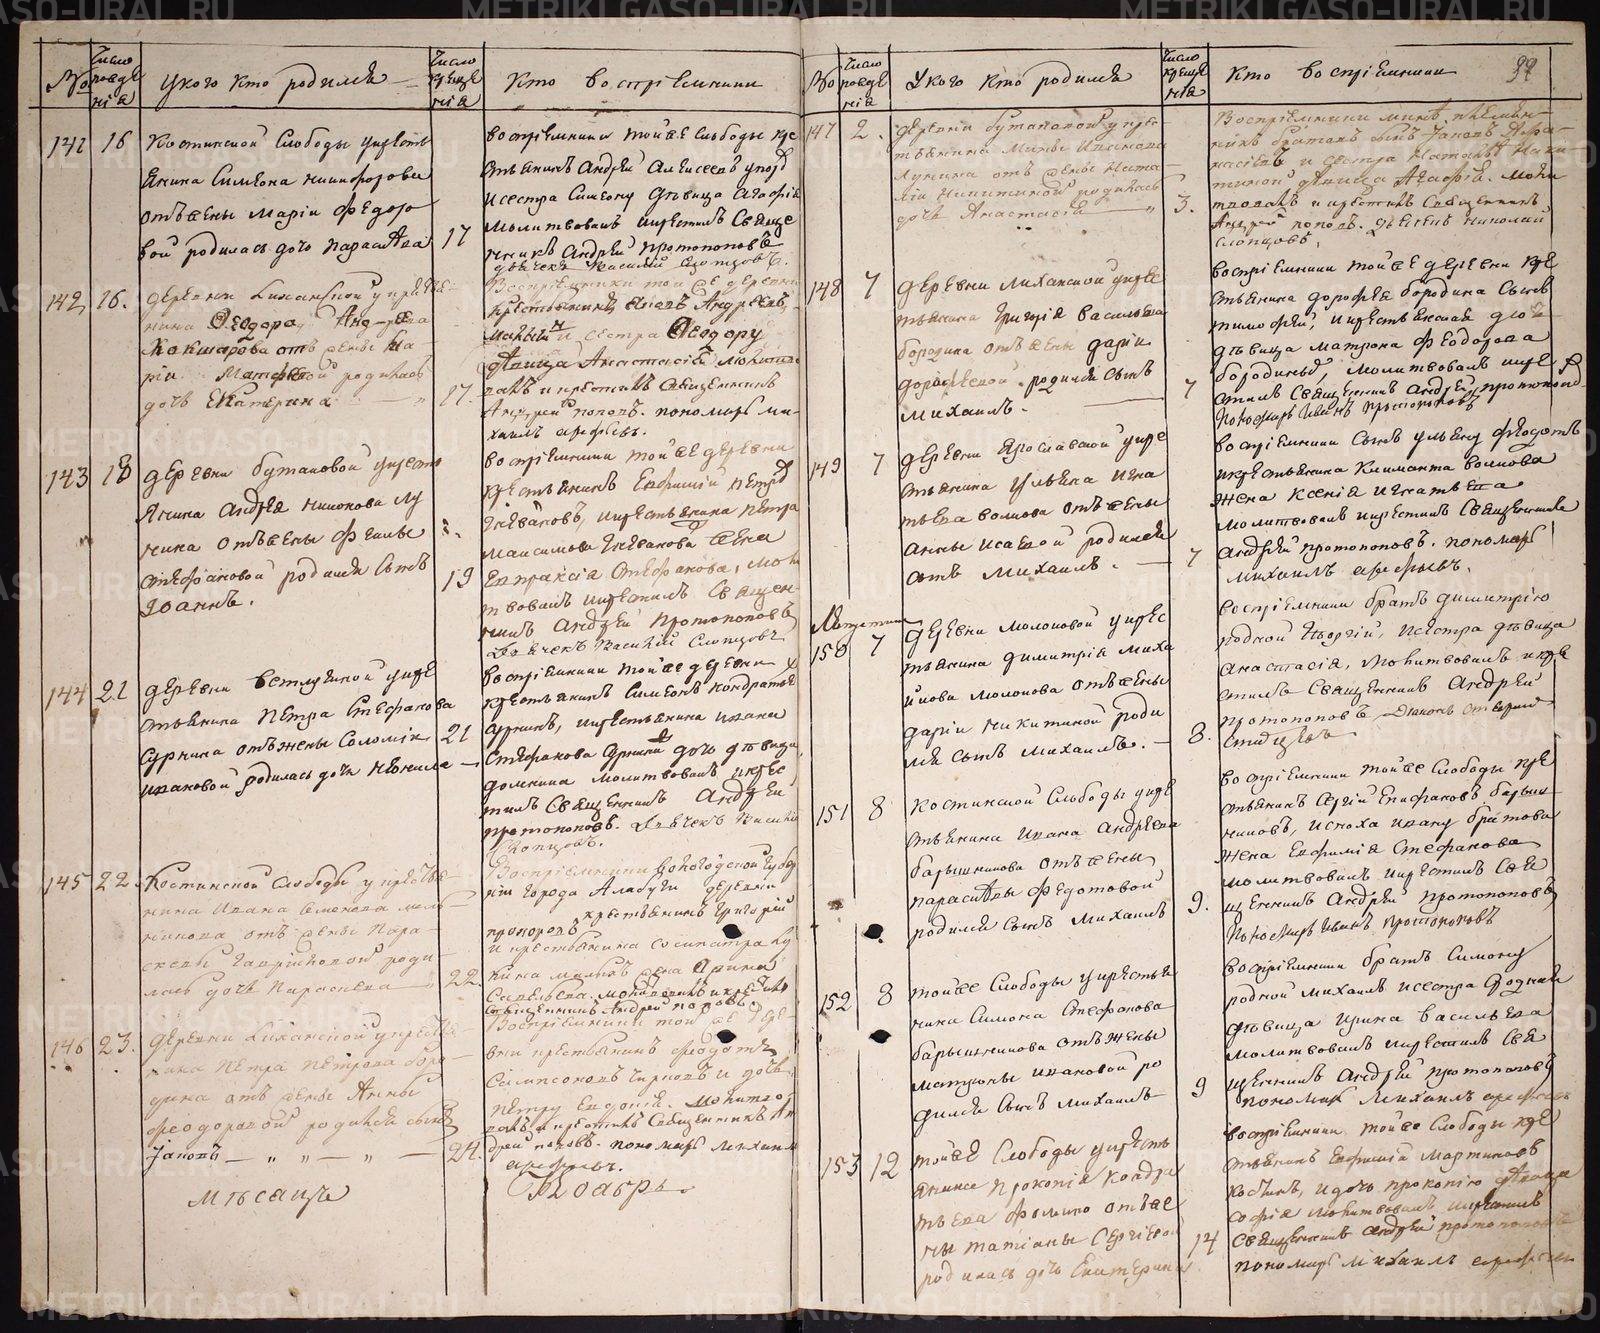 №
Число рожде нія
У кого кто родился
Число креще нія
Кто воспріемники
141
16
Костинской Слободы у кресть
янина Симеона Никифорова
отъ жены Маріи Федоро
вой родилась дочь Параскева
17
Воспріемники той же Слободы кре
стьянинъ Андрей Алексеевъ
и сестра Симеону девица Агафія
молитвовалъ и крестилъ Священ
никъ Андрей Протопоповъ
дьячекъ Василій Слопцовъ.
142
16.
деревни Лиханской у крестья
нина Ѳеодора Андреева
Кокшарова отъ жены Ма
ріи родилась
дочь Екатерина
17.
Воспріемники той же деревни
крестьянинъ Андреевъ
и сестра Ѳеодору
девица Анастасія молитво
валъ и крестилъ Священникъ
Андрей Поповъ. пономарь Ми
хаилъ Арефьевъ.
143
18
деревни Бутаковой у кресть
янина Андрея Никонова Лу
нина отъ жены
Стефановой родился сынъ
Іоаннъ.
19
Воспріемники той же деревни
крестьянинъ Евфимій Петровъ
и крестьянина Петра
Максимова жена
Евпраксія Стефанова, моли
твовалъ и крестилъ Священ
никъ Андрей Протопоповъ
Дьячекъ Василій Слопцовъ
144
21
деревни Ветлугиной у кре
стьянина Петра Стефанова
Сурнина отъ жены Соломіи
Ивановой родилась дочь Неонила
21
Воспріемники той же деревни
крестьянинъ Симеонъ Кондратьев
Сурнинъ, и крестьянина Ивана
Стефанова Сурнина дочь девица
Домнина молитвовалъ и крес
тилъ Священникъ Андрей
Протопоповъ. Дьячекъ Василій
Слопцовъ.
145
22.
Костинской Слободы у крестья
нина Ивана Семенова Мель
никова отъ жены Пара
скевы Гавриловой роди
лась дочь Параскева
22.
Воспріемники Вологодской губер
ніи города деревни
крестьянинъ Григорій
Прохоровъ
и крестьянина
жена Ирина
Савельева. молитвовалъ и крестилъ
Священникъ Андрей Поповъ.
146
23.
деревни Лиханской у крестья
нина Петра Петрова Боро
дина отъ жены Анны
Ѳеодоровой родился сынъ
Іаковъ
24.
Воспріемники той же дере
вни крестьянинъ Ѳеодотъ
Сампсоновъ и дочь
Петру Евдокія. молитво
валъ и крестилъ Священникъ Ан
дрей Поповъ. пономарь Михаилъ
Арефьевъ.
Мѣсяцъ
Ноябрь
№
Число рожде нія
У кого кто родился
Число креще нія
Кто воспріемники
99
147
2.
деревни Бутаковой у крес
тьянина Мины Иванова
Лунина отъ жены Ната
ліи Никитиной родилась
дочь Анастасія
3.
Воспріемники племян
никъ сынъ Іаковъ
и сестра Наталіи Ники
тиной девица Агафія. моли
твовалъ и крестилъ Священникъ
Андрей Поповъ. дьячекъ Николай
Слопцовъ.
148
7
деревни Лиханской у крес
тьянина Григорія Васильева
Бородина отъ жены Даріи
Дорофеевой родился сынъ
Михаилъ.
7
воспріемники той же деревни кре
стьянина Дорофея Бородина сынъ
Тимофей, и крестьянская дочь
девица Матрона Феодорова
Бородиныхъ, молитвовалъ и кре
стилъ Священникъ Андрей Протопопов
Пономарь Иванъ Протопоповъ
149
7
деревни Ярославской у крес
тьянина Ульяна Игна
тьева Волкова отъ жены
Анны Исаевой родился
сынъ Михаилъ.
7
воспріемники сынъ Ульяну Феодотъ
и крестьянина Климента Волкова
жена Ксенія Игнатьева
молитвовалъ и крестилъ Священникъ
Андрей Протопоповъ. пономарь
Михаилъ Арефьевъ.
150
7
деревни Молоковой у крес
тьянина Димитрія Миха
йлова Молокова отъ жены
Даріи Никитиной роди
лся сынъ Михаилъ.
8.
воспріемники братъ Димитрію
родной Георгій, и сестра девица
Анастасія, молитвовалъ и кре
стилъ Священникъ Андрей
Протопоповъ
151
8
Костинской Слободы у кре
стьянина Ивана Андреева
Барышникова отъ жены
Параскевы Федотовой
родился сынъ Михаилъ
9.
воспріемники той же Слободы кре
стьянинъ Сергій Епифановъ Барыш
никовъ, и сноха Ивану братова
жена Евфимія Стефанова
молитвовалъ и крестилъ Свя
щенникъ Андрей Протопоповъ
Пономарь Иванъ Протопоповъ
152
8
той же Слободы у крестья
нина Симона Стефанова
Барышникова отъ жены
Матроны Ивановой ро
дился сынъ Михаилъ
9
воспріемники братъ Симону
родной Михаилъ и сестра родная
девица Ирина Васильева
молитвовалъ и крестилъ Свя
щенникъ Андрей Протопоповъ
пономарь Михаилъ Арефьевъ
153
12
той же Слободы у кресть
янина Прокопія Кондра
тьева Фомино отъ же
ны Татіаны Сергіевой
родилась дочь Екатерина
14
воспріемники той же Слободы кре
стьянинъ Евфимій Мартиновъ
Костинъ, и дочь Прокопію девица
Софія молитвовалъ и крестилъ
Священникъ Андрей Протопоповъ
пономарь Михаилъ Арефьевъ